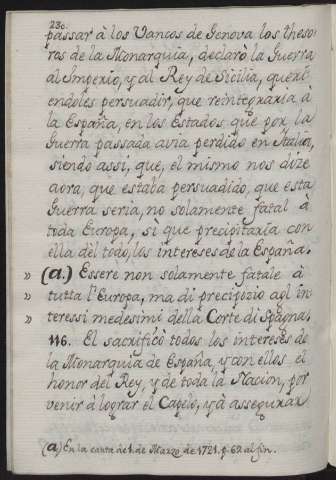 230.
passar à los Vancos de Genova los theso-
ros de la Monarquia, declarò la Guerra
al Imperio, y al Rey de Sicilia, queri-
endoles persuadir, que reintegraria à
la España, en los Estados, que por la
Guerra passada avia perdido en Italia,
siendo assi, que, el mismo nos dize
aora, que estaba persuadido, que esta
Guerra seria, no solamente fatal à
toda Europa, si que precipitaria con
ella del todo, los intereses de la España.
» (a.) Essere non solamente fatale à
» tutta l'Europa, ma di precipizio agl in-
» teressi medesimi della Corte di Spagna.
116. El sacrificò todos los intereses de
la Monarquia de España, y con ellos el
honor del Rey, y de toda la Nacion, por
venir à lograr el Capelo, y à assegurar
(a.) En la carta de 1. de Marzo, de 1721. p. 69. al fin.